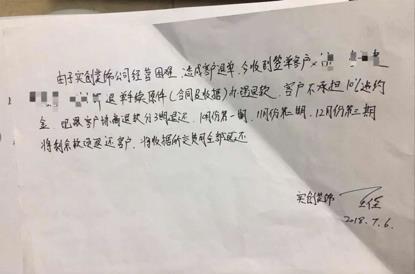 由于实创装饰公司经营困难,造成客户退单,今收到签单客户
退单手续原件(合同及收据)办理退款,客户不承担10%违约
金,已跟客户协商退款分3期退还,10月份第一期,11月份第二期,12月份第三期
将剩余款项退还客户,将收据所交费用全部退还
实创装饰
2018.7.6.